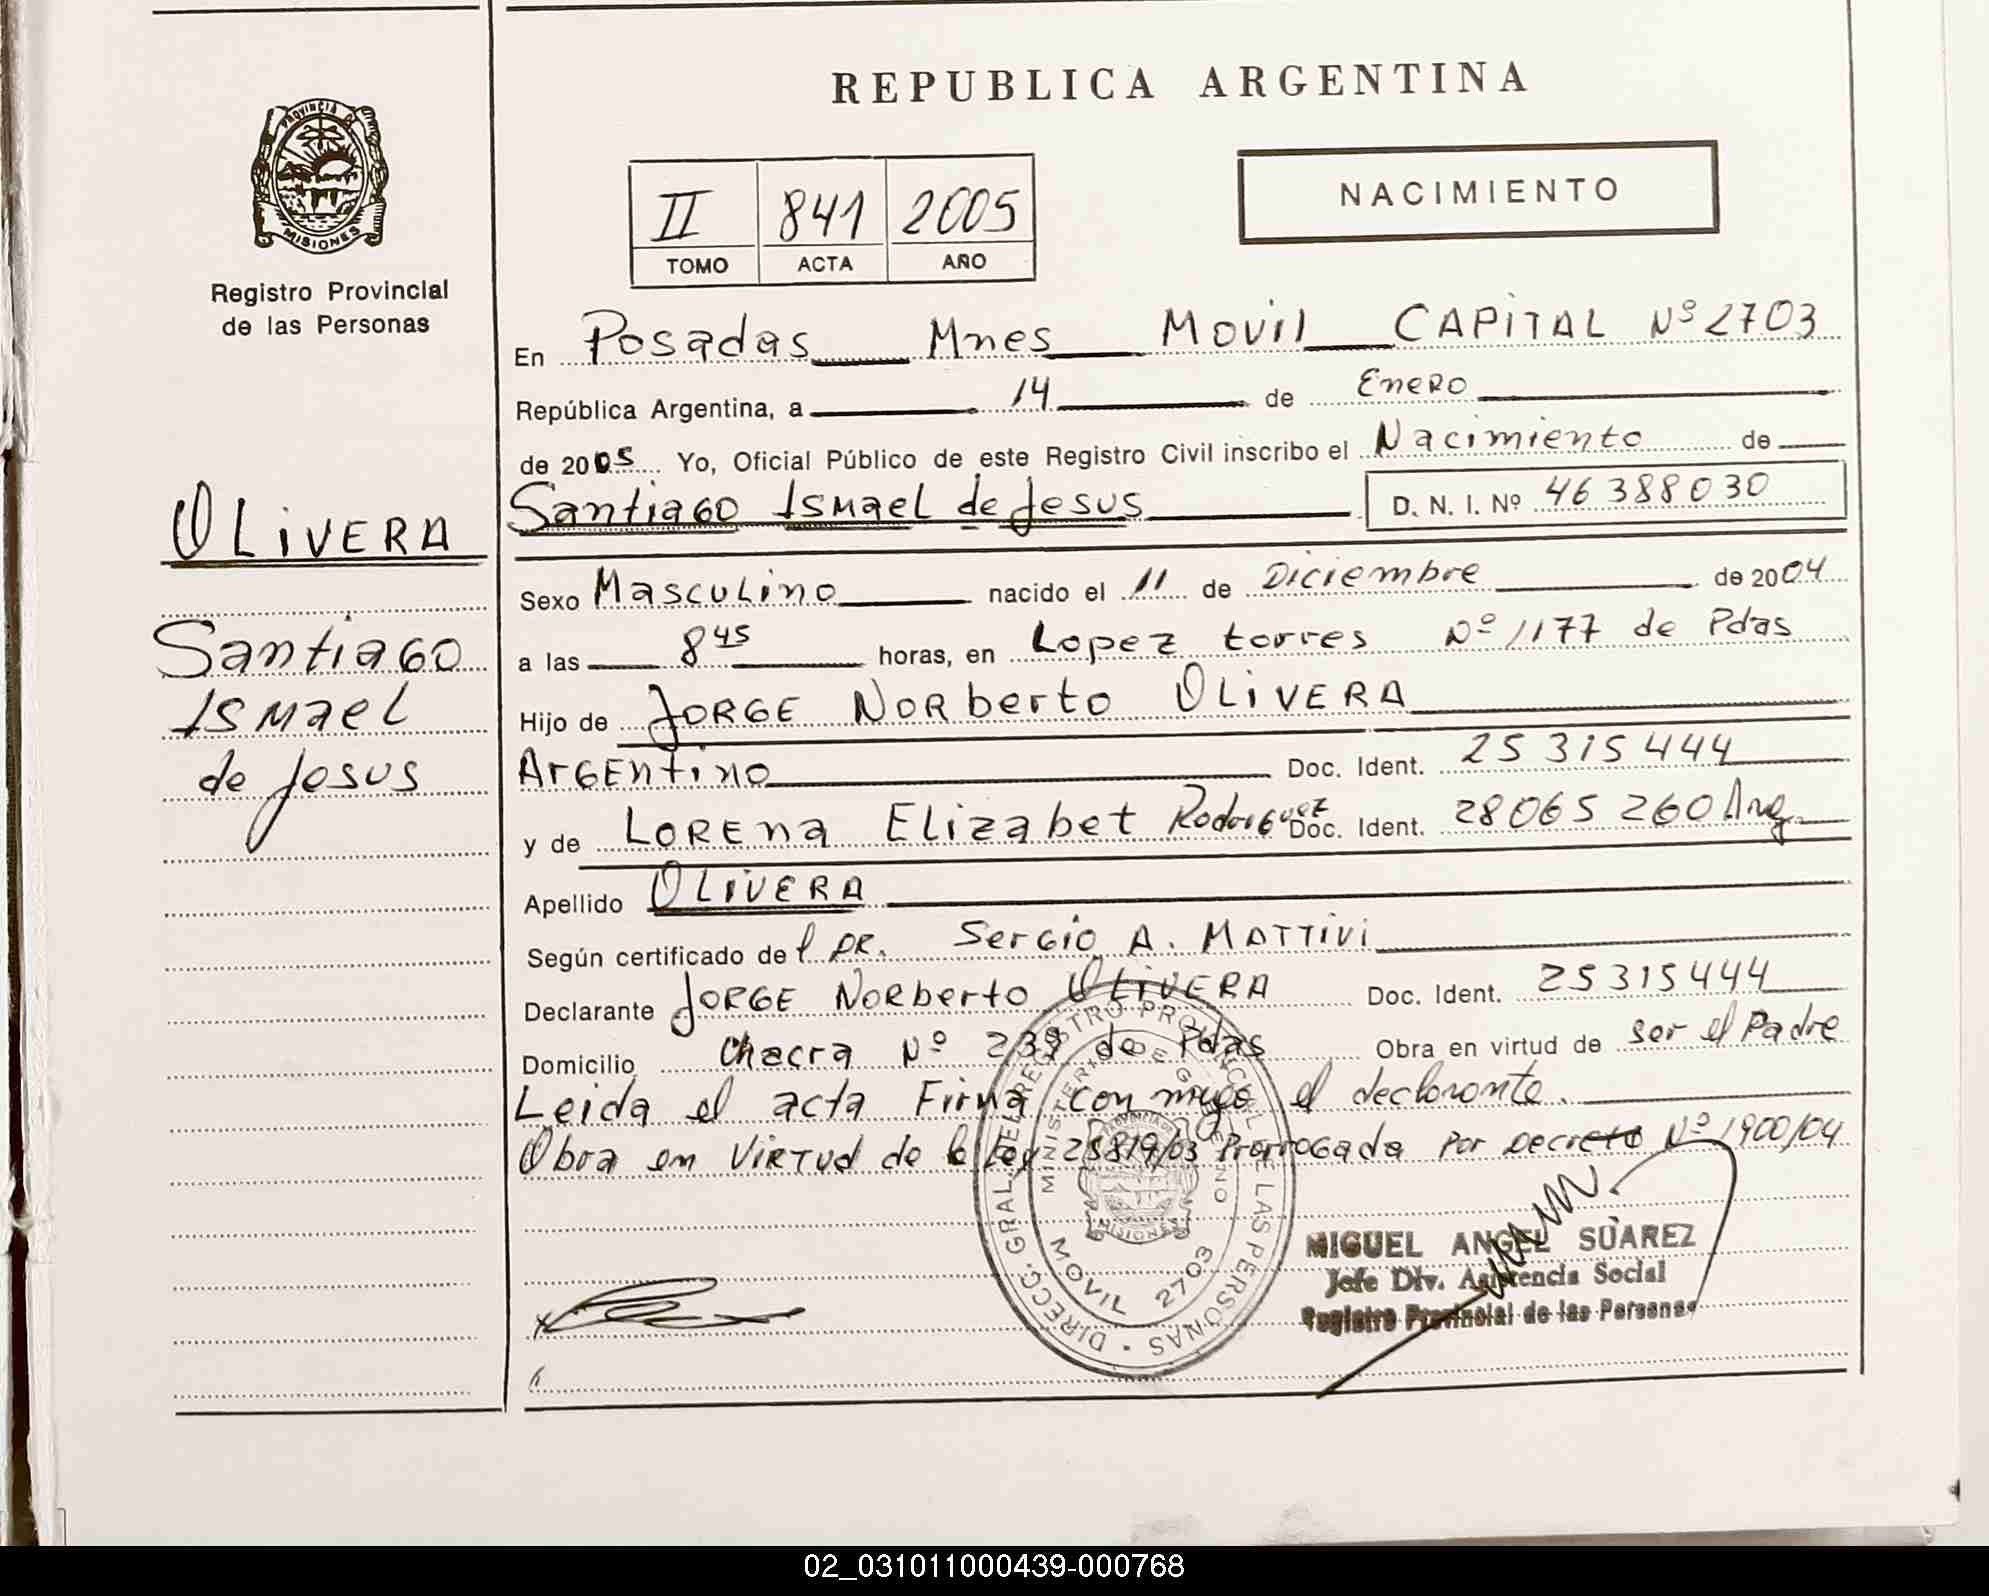 REPUBLICA ARGENTINA
PROVINCIA DE
MISIONES
Registro Provincial
de las Personas
II 841 2005
TOMO ACTA AÑO
NACIMIENTO
OLIVERA
Santiago
Ismael
de Jesus
En Posadas Mnes Movil CAPITAL Nº 2703
República Argentina, a 14 de Enero
de 2005 Yo, Oficial Público de este Registro Civil inscribo el Nacimiento de
Santiago Ismael de Jesus D. N. I. Nº 46388030
Sexo Masculino nacido el 11 de Diciembre de 2004
a las 8 45 horas, en Lopez torres Nº 1177 de Pdas
Hijo de Jorge Norberto OLIVERA
Argentino Doc. Ident. 25315444
y de Lorena Elizabet Rodriguez Doc. Ident. 28065260 Arg.
Apellido OLIVERA
Según certificado del DR. Sergio A. Mattivi
Declarante Jorge Norberto OLIVERA Doc. Ident. 25315444
Domicilio Chacra Nº 239 de Pdas Obra en virtud de ser el Padre
Leida el acta Firma con migo el declarante.
Obra en Virtud de la Ley 25819/03 Prorrogada Por Decreto Nº 1900/04
DIRECC. GRAL. DEL REGISTRO PROVINCIAL DE LAS PERSONAS
MINISTERIO DE GOBIERNO
MISIONES
MOVIL 2703
MIGUEL ANGEL SUAREZ
Jefe Div. Asistencia Social
Registro Provincial de las Personas
02_031011000439-000768